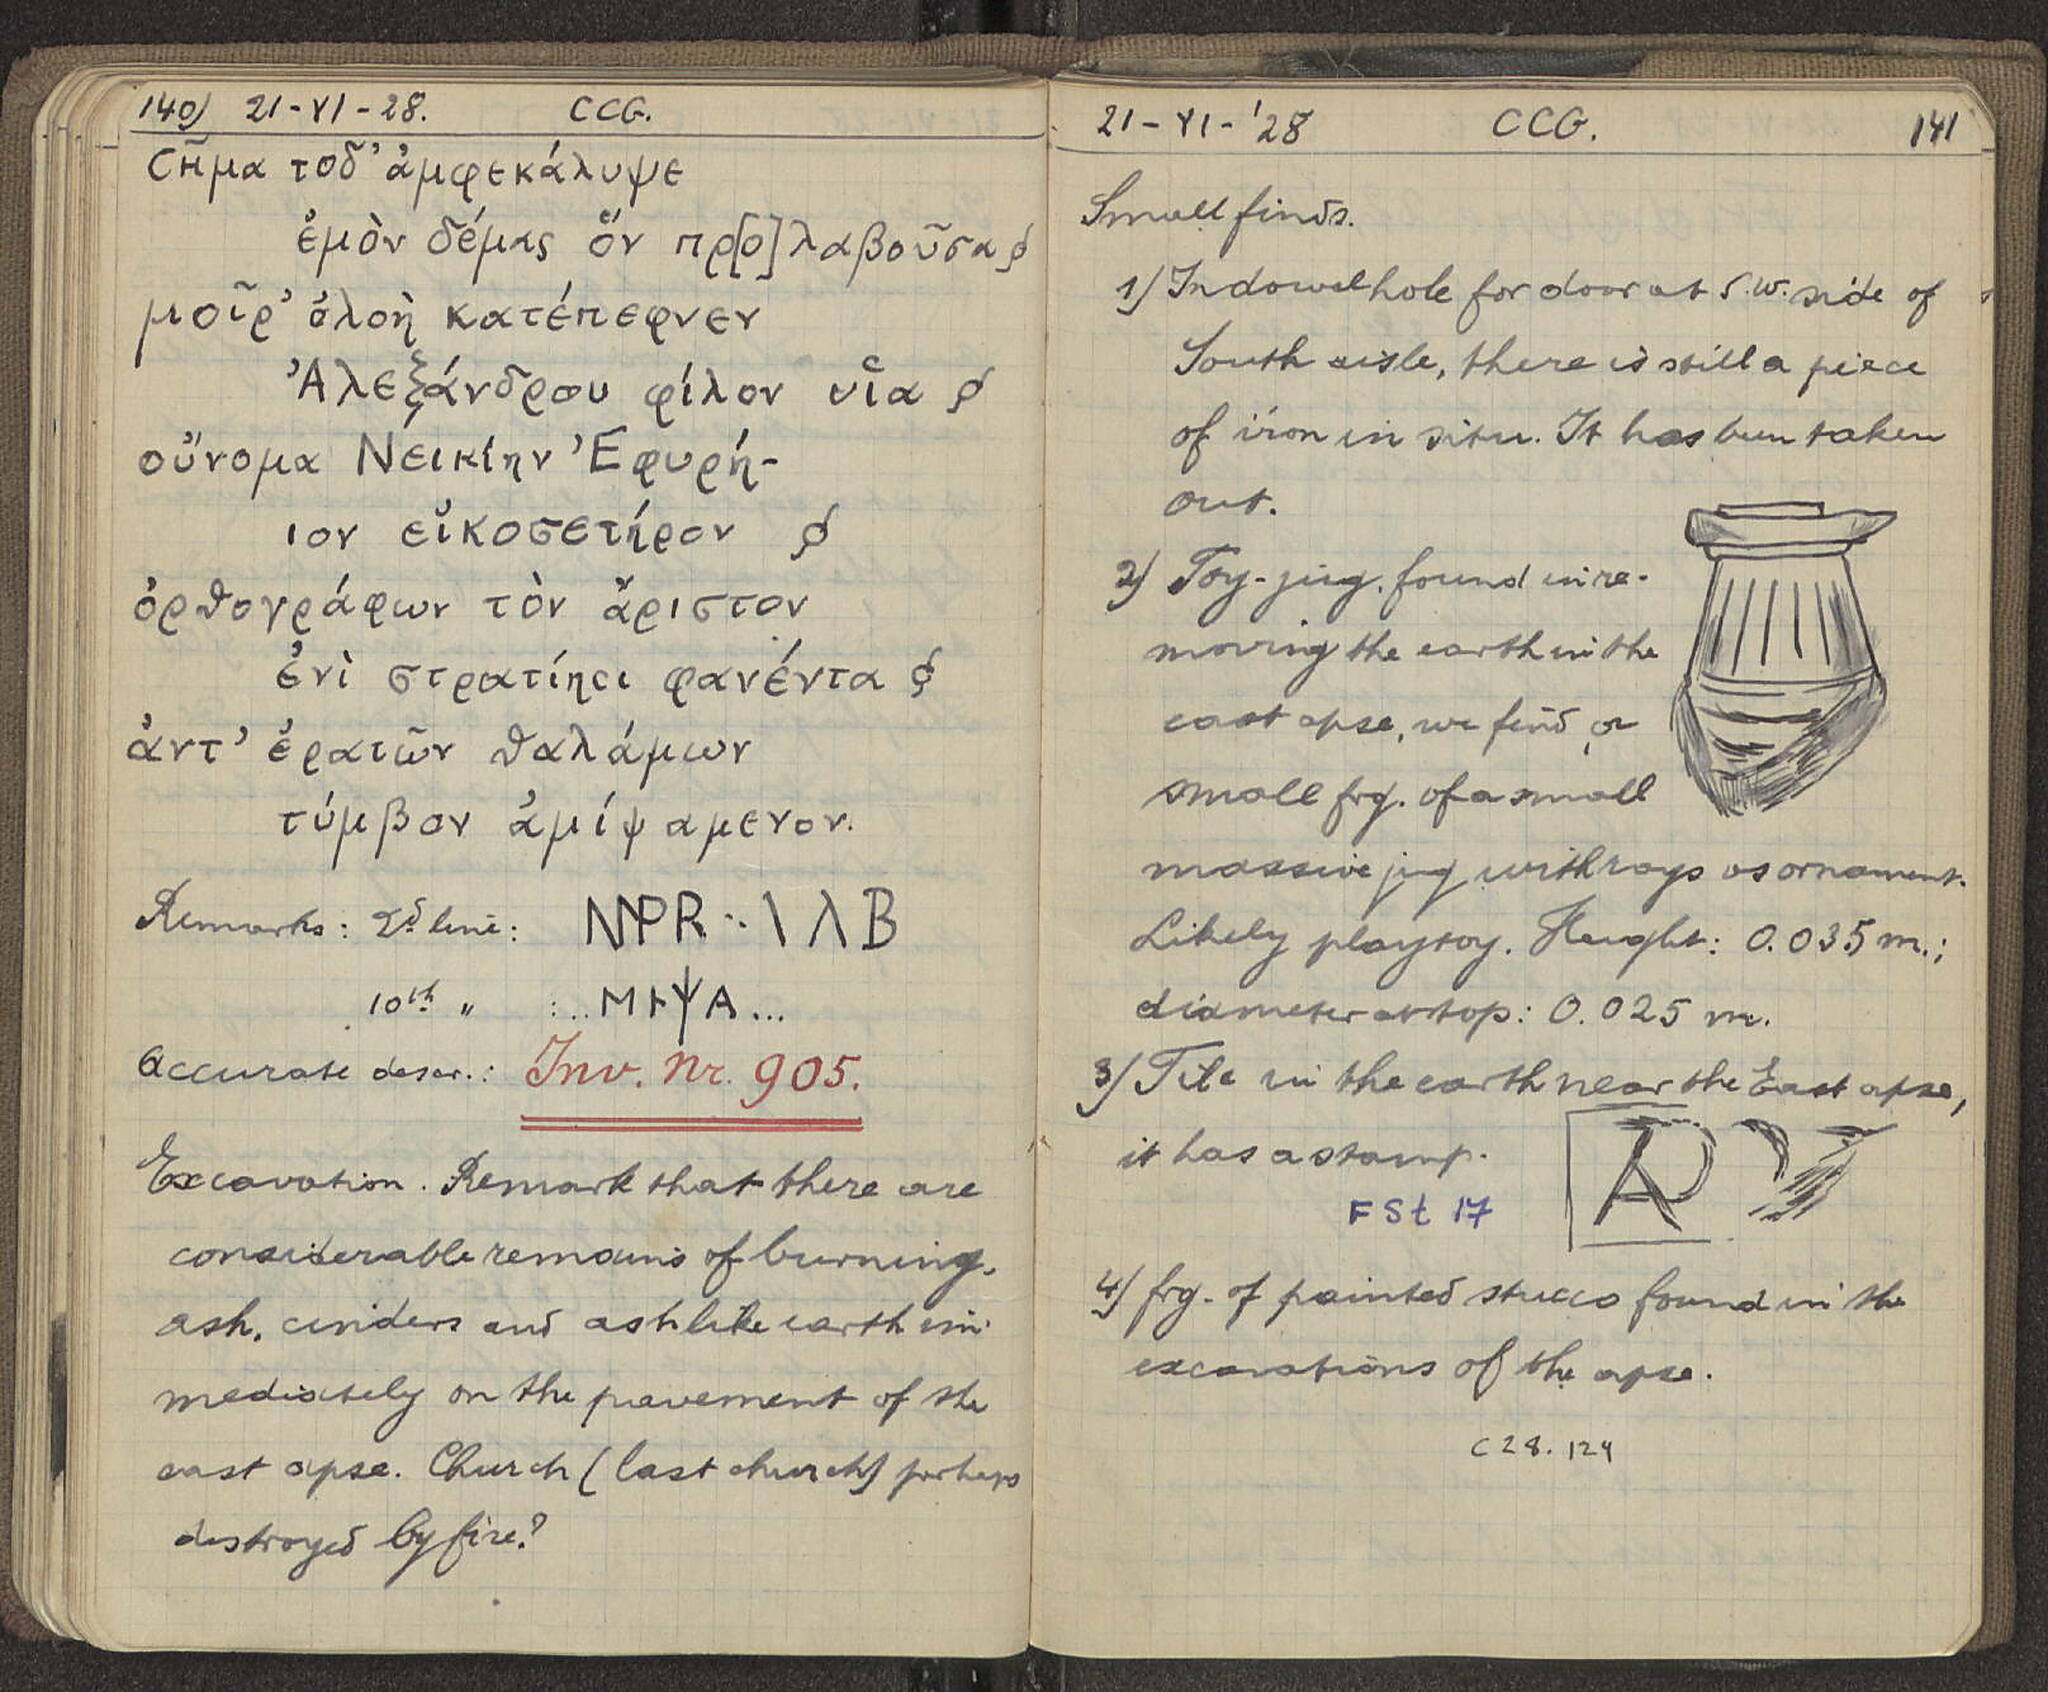 140) 21-VI-28. CCG.
Cῆμα τοδ' ἀμφεκάλυψε
ἐμὸν δέμας ὅν πρ[ο]λαβοῦσα
μοῖρ' ὀλοὴ κατέπεφνεν
Ἀλεξάνδρου φίλον υἷα
οὔνομα Νεικίην Ἐφυρή-
ιον εἰκοσετήρον
ὀρθογράφων τὸν ἄριστον
ἐνὶ στρατίηςι φανέντα
ἀντ' ἐρατῶν θαλάμων
τύμβον ἀμίψαμενον.
Remarks: 2d line:
10th " :
Accurate descr.: Inv. Nr. 905.
Excavation. Remark that there are
considerable remains of burning,
ash, cinders and ashlike earth im-
mediately on the pavement of the
east apse. Church (last church) perhaps
destroyed by fire?
21-VI-'28 CCG. 141
Small finds.
1) In dowelhole for door at S.W. side of
South aisle, there is still a piece
of iron in situ. It has been taken
out.
2) Toy-jug. found in re-
moving the earth in the
east apse, we find, a
small frg. of a small
massive jug with rays as ornament.
Likely playtoy. Height: 0.035 m.;
diameter at top: 0.025 m.
3) Tile in the earth near the East apse,
it has a stamp.
FSt 17
4) frg. of painted stucco found in the
excavations of the apse.
C 28. 124